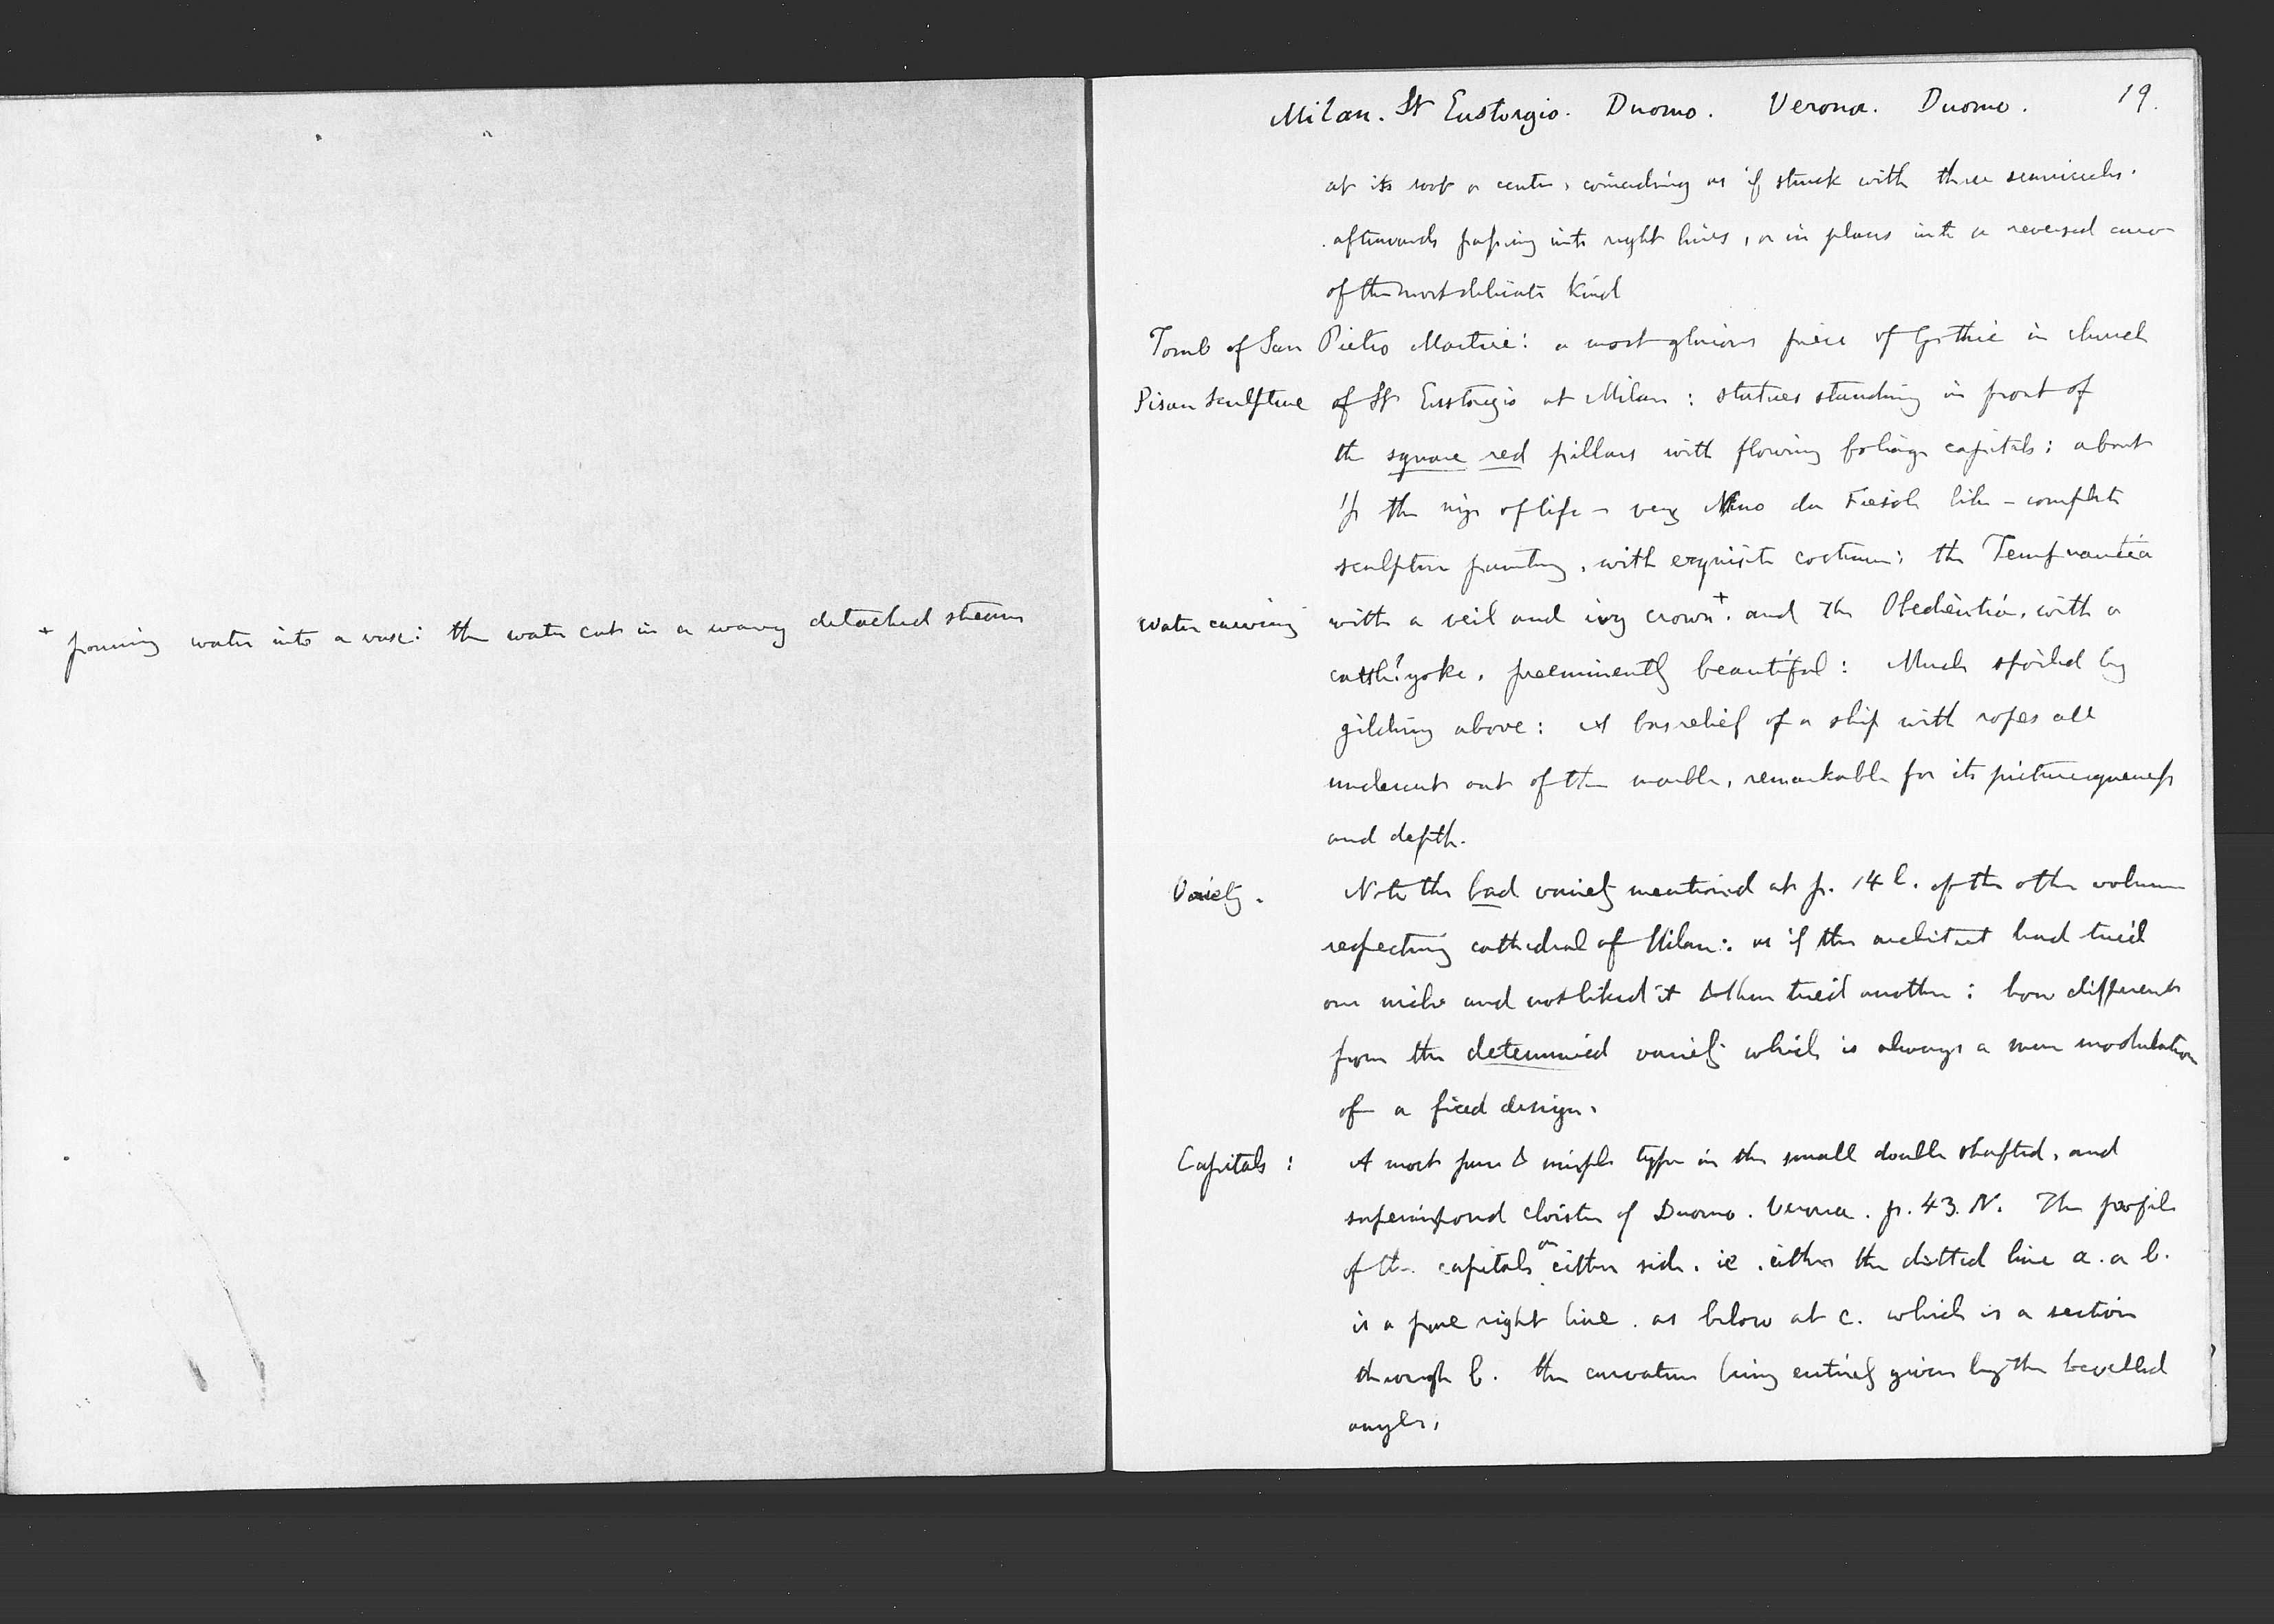 + pouring water into a vase: the water cut in a wavy detached stream
Milan. St Eustorgio. Duomo. Verona. Duomo. 19.
at its root or centre, coinciding as if struck with three semicircles.
afterwards passing into right lines, or in places into a reversed curve
of the most delicate kind
Tomb of San Pietro Martire: a most glorious piece of Gothic in church
Pisan Sculpture of St Eustorgio at Milan: statues standing in front of
the square red pillars with flowing foliage capitals: about
the size of life - very Mino da Fiesole like - complete
sculpture painting, with exquisite costume: the Temperantia
Water carving with a veil and ivy crown+. and the Obedientia, with a
yoke, preeminently beautiful: Much spoiled by
gilding above: A bas relief of a ship with ropes all
undercut out of the marble, remarkable for its picturesqueness
and depth.
Variety. Note the bad variety mentioned at p. 14 l. of the other volume
respecting cathedral of Milan: as if the architect had tried
one niche and not liked it & then tried another: how different
from the determined variety which is always a mere modulation
of a fixed design.
Capitals: A most pure & simple type in the small double shafted, and
superimposed cloister of Duomo. Verona. p. 43. N. The profile
of the capitals on either side. ie. either the dotted line a. or b.
is a pure right line. as below at c. which is a section
through b. the curvature being entirely given by the bevelled
angles.